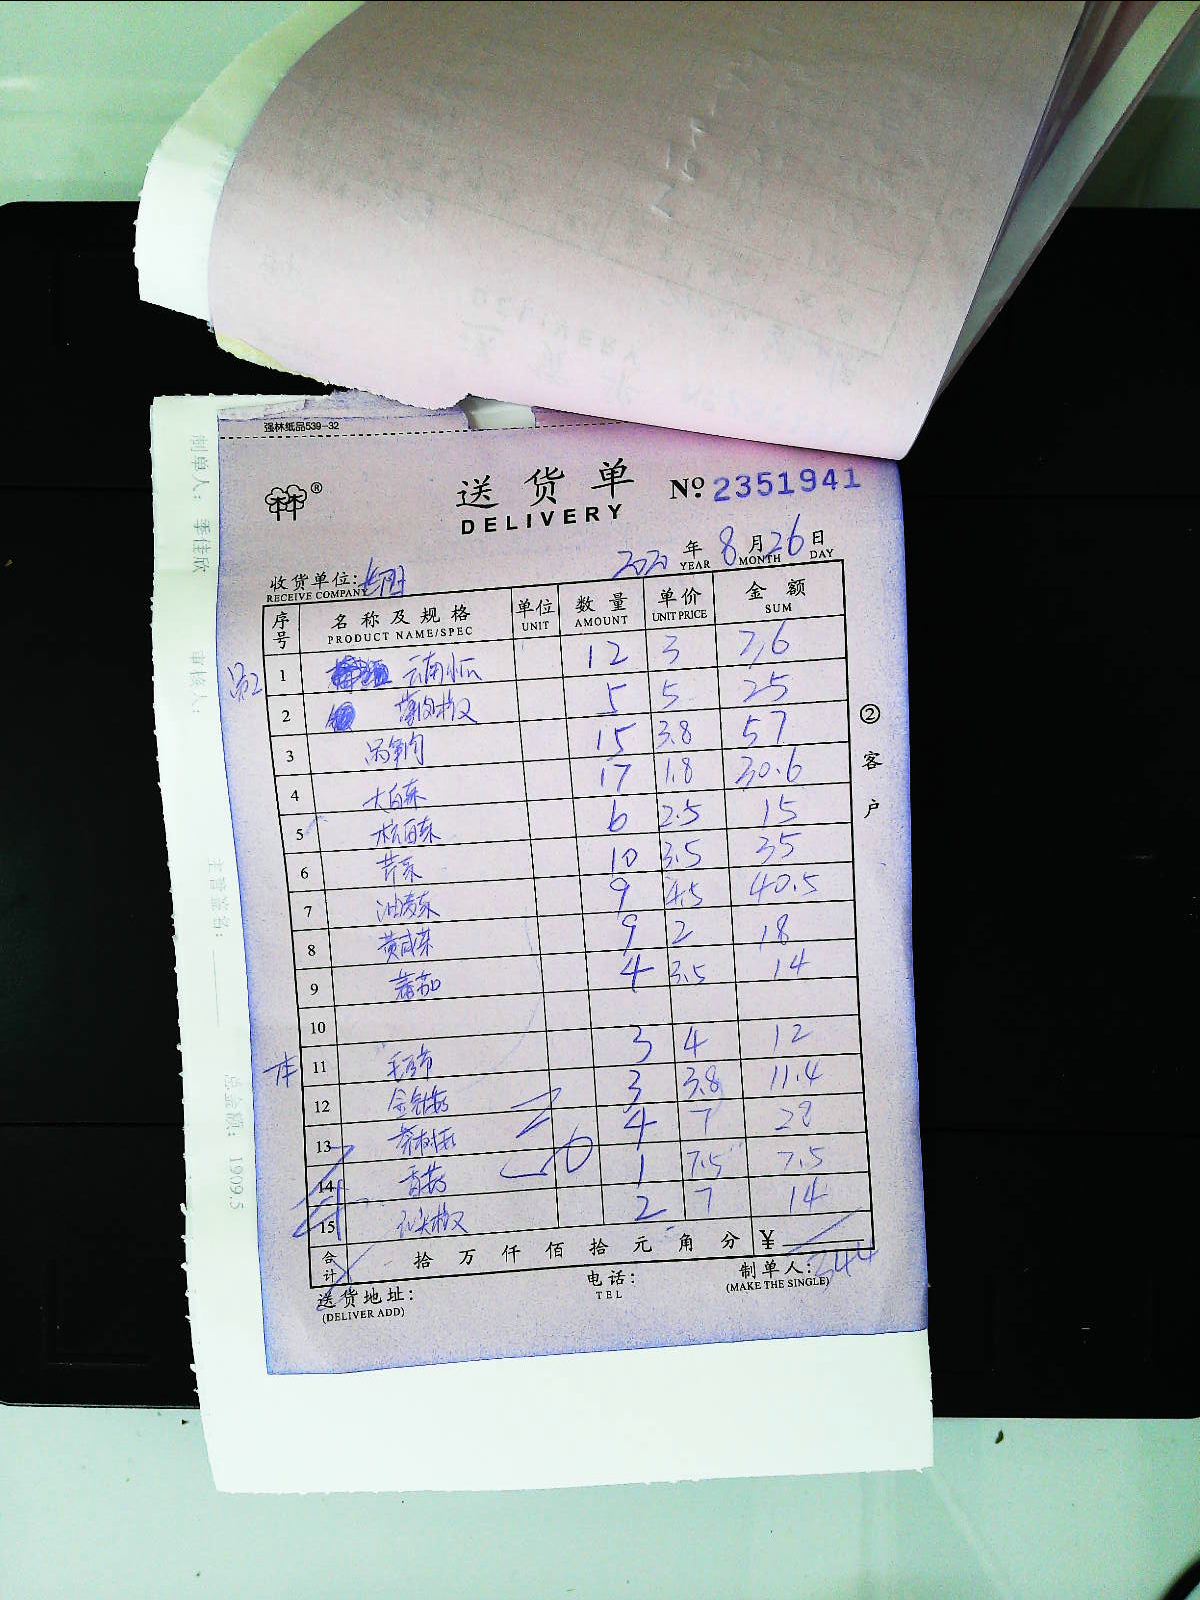 强林纸品539-32
送货单
DELIVERY
№ 2351941
2020 年 8 月 26 日
YEAR MONTH DAY
收货单位:
RECEIVE COMPANY
序号 名称及规格 单位 数量 单价 金额
PRODUCT NAME/SPEC UNIT AMOUNT UNIT PRICE SUM
1 云南小瓜 12 3 36
2 薄皮椒 5 5 25
3 15 3.8 57
4 大白菜 17 1.8 30.6
5 杭白菜 6 2.5 15
6 芹菜 10 3.5 35
7 油麦菜 9 4.5 40.5
8 黄咸菜 9 2 18
9 蕃茄 4 3.5 14
10
11 毛豆 3 4 12
12 金针菇 3 3.8 11.4
13 茶树菇 4 7 28
14 香菇 1 7.5 7.5
15 2 7 14
合计 拾 万 仟 佰 拾 元 角 分 ¥
344
送货地址:
(DELIVER ADD)
电话:
TEL
制单人:
(MAKE THE SINGLE)
②客户
制单人: 季佳欣
审核人:
主管签名:
总金额: 1909.5